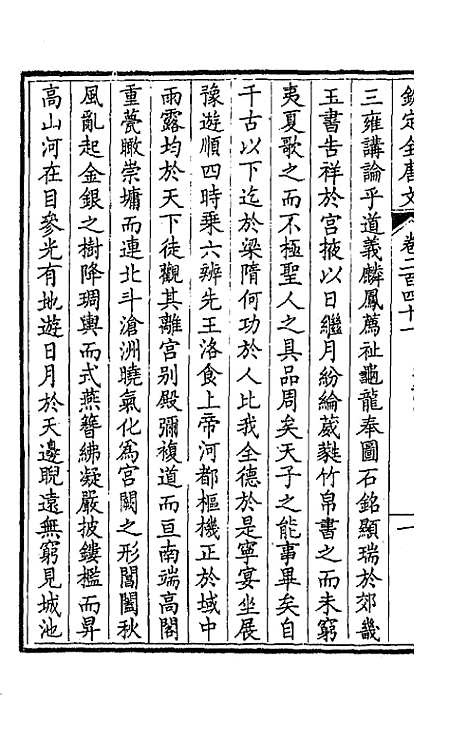 欽定全唐文 卷二百四十一 一
三雍講論乎道義麟鳳薦祉龜龍奉圖石銘顯瑞於郊畿
玉書告祥於宮掖以日繼月紛綸葳蕤竹帛書之而未窮
夷夏歌之而不極聖人之具品周矣天子之能事畢矣自
千古以下迄於梁隋何功於人比我全德於是寧宴坐展
豫遊順四時乘六辨先王洛食上帝河都樞機正於域中
雨露均於天下徒觀其離宮别殿彌複道而亘南端高閣
重甍瞰崇墉而連北斗滄洲曉氣化為宮闕之形閶闔秋
風亂起金銀之樹降琱輿而式燕簪紼凝嚴披鏤檻而昇
高山河在目參光有地遊日月於天邊睨遠無窮見城池